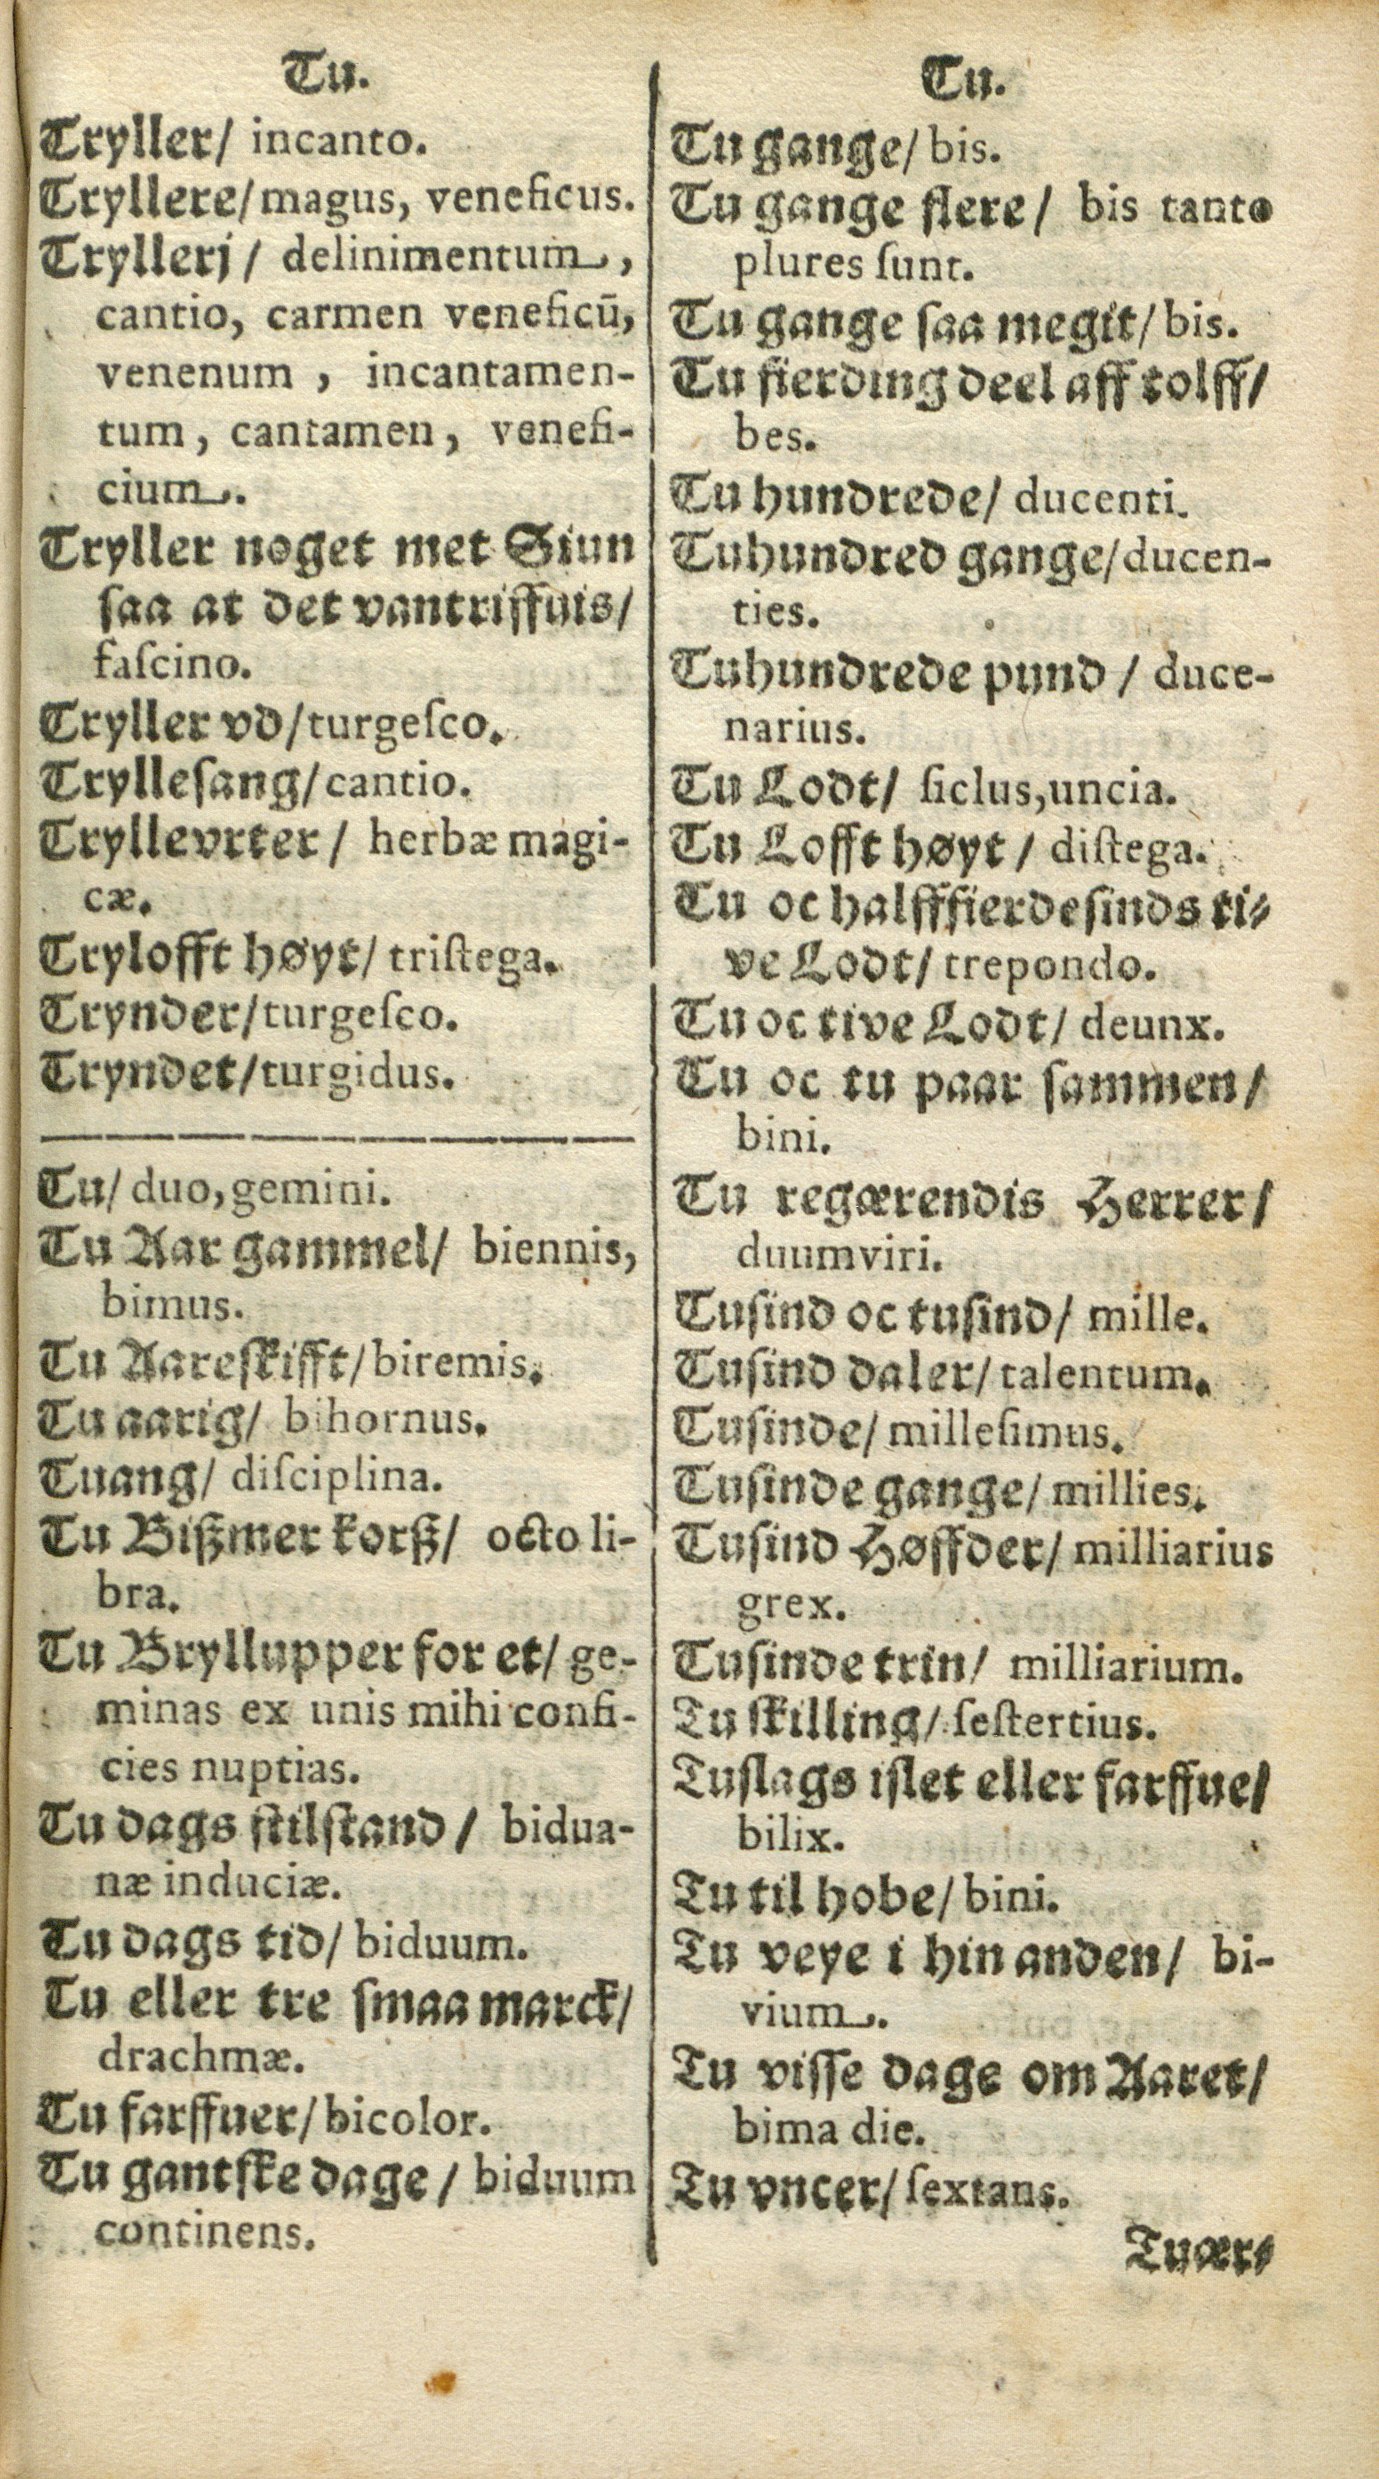 Tu.
Tryller/ incanto.
Tryllere/magus, veneficus.
Trylleri/ delinimentum,
cantio, carmen veneficū,
venenum, incantamen-
tum, cantamen, venefi-
cium.
Tryller noget met Siun
saa at det vantriffuis/
faſcino.
Tryller vd/turgeſco.
Trylleſang/cantio.
Tryllevrter/ herbæ magi-
cæ.
Trylofft høyt/ triſtega.
Trynder/turgeſco.
Tryndet/turgidus.
Tu/ duo,gemini.
Tu Aar gammel/ biennis,
bimus.
Tu Aareſkifft/biremis.
Tu aarig/ bihornus.
Tuang/ diſciplina.
Tu Bißmer korß/ octo li-
bra.
Tu Bryllupper for et/ ge-
minas ex unis mihi confi-
cies nuptias.
Tu dags ſtilſtand/ bidua-
næ induciæ.
Tu dags tid/ biduum.
Tu eller tre ſmaa marck/
drachmæ.
Tu farffuer/bicolor.
Tu gantſke dage/ biduum
continens.
Tu.
Tu gange/ bis.
Tu gange flere/ bis tanto
plures ſunt.
Tu gange ſaa megit/ bis.
Tu fierding deel aff tolff/
bes.
Tu hundrede/ ducenti.
Tuhundred gange/ducen-
ties.
Tuhundrede pund/ duce-
narius.
Tu Lodt/ ſiclus,uncia.
Tu Lofft høyt/ diſtega.
Tu oc halfffierdeſinds ti-
ve Lodt/ trepondo.
Tu oc tive Lodt/ deunx.
Tu oc tu paar ſammen/
bini.
Tu regærendis Herrer/
duumviri.
Tuſind oc tuſind/ mille.
Tuſind daler/ talentum.
Tuſinde/ milleſimus.
Tuſinde gange/ millies.
Tuſind Høffder/ milliarius
grex.
Tuſinde trin/ milliarium.
Tu ſkilling/ ſeſtertius.
Tuſlags iſlet eller farffue/
bilix.
Tu til hobe/ bini.
Tu veye i hin anden/ bi-
vium.
Tu viſſe dage om Aaret/
bima die.
Tu vncer/ ſextans.
Tuær-